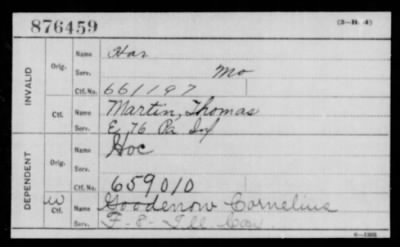 876459
(3-H. 4)
INVALID
Orig.
Name Har
Serv. Mo
Ctf. No. 661197
Ctf.
Name Martin, Thomas
Serv. E, 76 Pa Inf
DEPENDENT
Orig.
Name Hoc
Serv.
Ctf. No. 659010
W
Ctf.
Name Goodenow Cornelius
Serv. F-8-Ill Cav